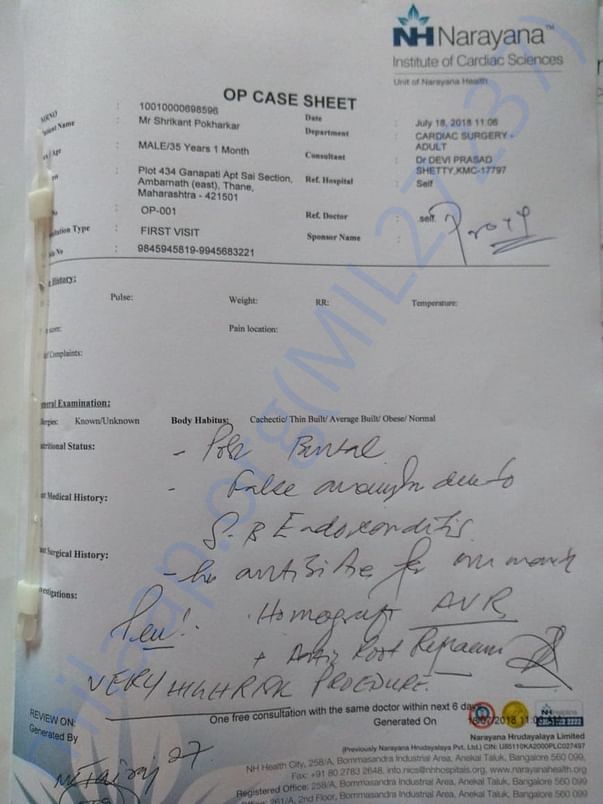 NH Narayana™
Institute of Cardiac Sciences
Unit of Narayana Health
OP CASE SHEET
MRNO : 10010000698596
Name : Mr Shrikant Pokharkar
Age : MALE/35 Years 1 Month
: Plot 434 Ganapati Apt Sai Section,
Ambarnath (east), Thane,
Maharashtra - 421501
No : OP-001
Type : FIRST VISIT
No : 9845945819-9945683221
Date : July 18, 2018 11:06
Department : CARDIAC SURGERY -
ADULT
Consultant : Dr DEVI PRASAD
SHETTY,KMC-17797
Ref. Hospital : Self
Ref. Doctor : self
Sponsor Name :
History:
Pulse: Weight: RR: Temperature:
score: Pain location:
Complaints:
General Examination:
Known/Unknown Body Habitus: Cachectic/ Thin Built/ Average Built/ Obese/ Normal
Status:
- Post Bental
Medical History:
- False due to
S.B Endocarditis
Surgical History:
for one month
Homograft AVR
+ Root
VERY HIGH RISK PROCEDURE.
One free consultation with the same doctor within next 6 days
REVIEW ON:
Generated By
Generated On
Narayana Hrudayalaya Limited
(Previously Narayana Hrudayalaya Pvt. Ltd.) CIN: U85110KA2000PLC027497
NH Health City, 258/A, Bommasandra Industrial Area, Anekal Taluk, Bangalore 560 099,
Fax: +91 80 2783 2648, info.nics@nhhospitals.org, www.narayanahealth.org
Registered Office: 258/A, Bommasandra Industrial Area, Anekal Taluk, Bangalore 560 099
261/A, 2nd Floor, Bommasandra Industrial Area, Anekal Taluk, Bangalore 560 099
milaap.org(MIL27237)